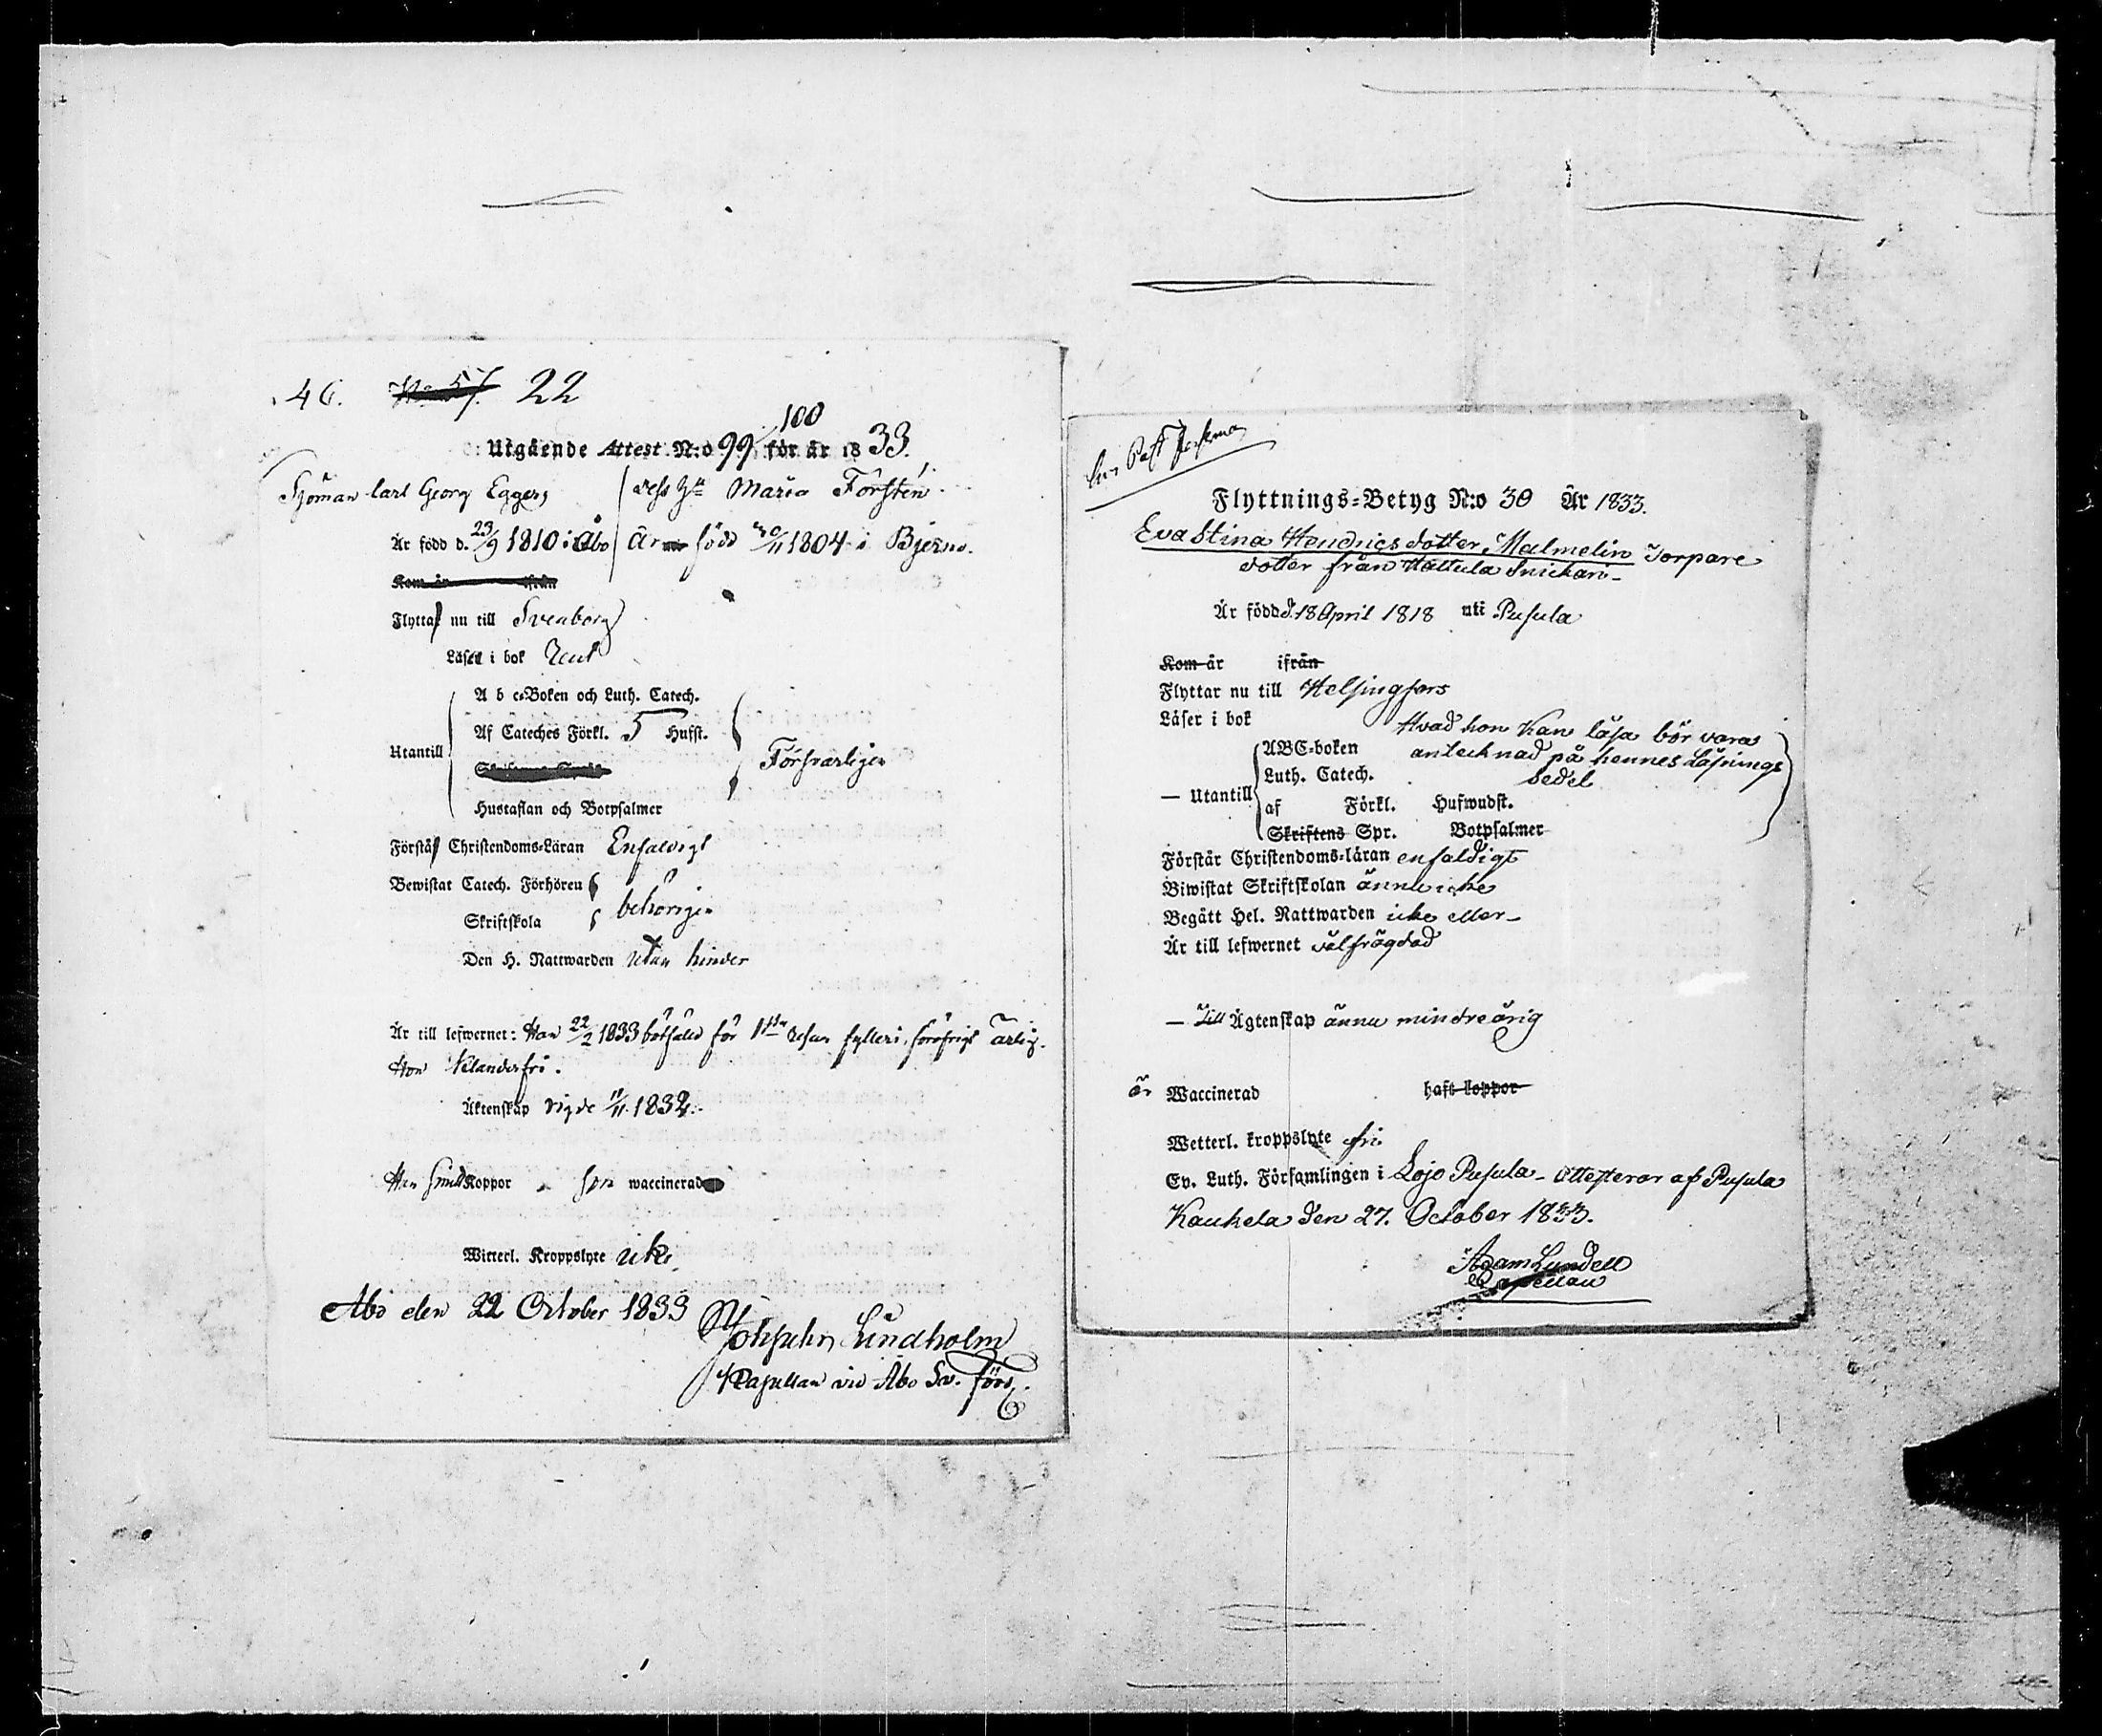 46. No 57. 22
100
Utgående Attest N:o 99 för år 1833.
Sjöman Carl Georg Eggers
dess Hu Maria Forstén
Är född d. 23/9 1810 i Åbo
är född 20/11 1804 i Bjerno.
Kom år ifrån
Flytta nu till Sveaborg
Läser i bok Rent
A b c-Boken och Luth. Catech.
Af Cateches Förkl. 5 Hufst.
Utantill
Försvarligen
Hustaflan och Botpsalmer
Förstå Christendoms-Läran Enfaldigt
Bewistat Catech. Förhören
behörigen
Skriftskola
Den H. Nattwarden utan hinder
Är till lefwernet: Han 22/2 1833 bötfälld för 1sta resan fylleri, föröfrigt ärlig.
Hon klanderfri.
Äktenskap vigde 11/11 1832.
Han haft Koppor hon waccinerad
Witterl. Kroppslyte icke.
Åbo den 22 October 1833
Lindholm
Kapellan vid Åbo Sv. förs.
Flyttnings-Betyg N:o 30 År 1833.
Eva Stina Hendricsdotter Malmelin Torpare
dotter från Hattula Snickari-
Är född d. 18 April 1818 uti Pusula
Kom år ifrån
Flyttar nu till Helsingfors
Läser i bok
Hvad hon kan läsa bör vara
ABC-boken
antecknad på hennes Läsnings
Luth. Catech.
sedel
— Utantill
af Förkl. Hufwudst.
Skriftens Spr. Botpsalmer
Förstår Christendoms-läran enfaldigt
Biwistat Skriftskolan ännu icke
Begått Hel. Nattwarden icke eller-
Är till lefwernet välfrägdad
— Till Ägtenskap ännu mindreårig
är Waccinerad haft koppor
Wetterl. kroppslyte fri
Ev. Luth. Församlingen i Lojo Pusula- Attesterar af Pusula
Kaukela den 27. October 1833.
Adam Lundell
Capellan